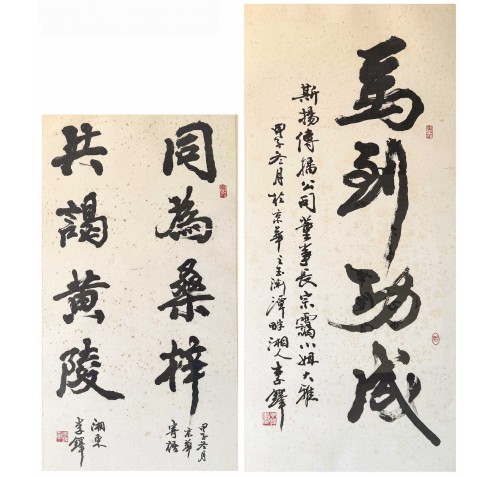 馬到功成
斯揚傳播公司董事長宗靄小姐大雅
甲子冬月於京華之玉淵潭畔湘人李鐸
同為桑梓
共謁黄陵
甲子冬月
京華
寄語
湘東
李鐸